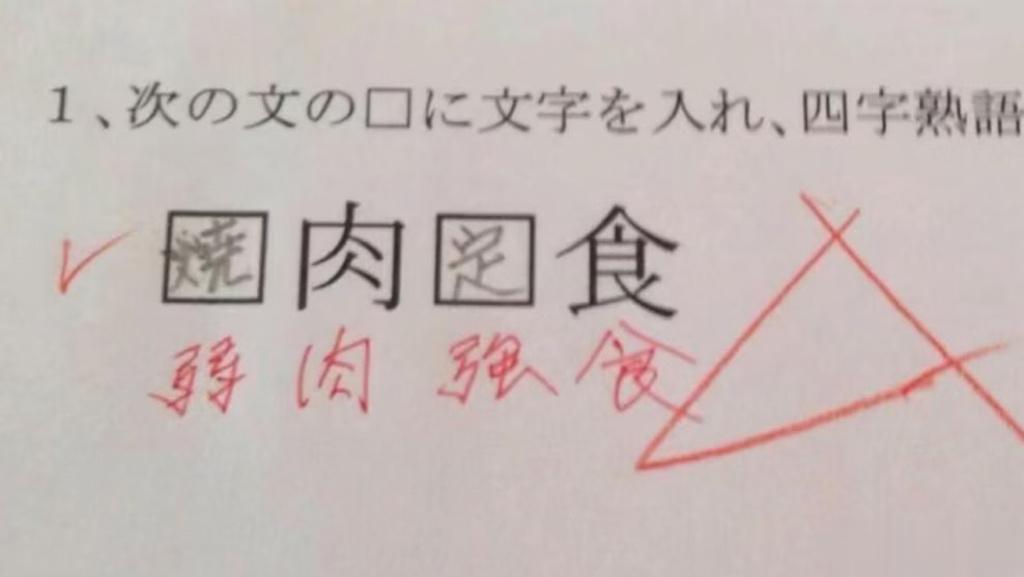 1、次の文の□に文字を入れ、四字熟語
焼肉定食
弱肉強食